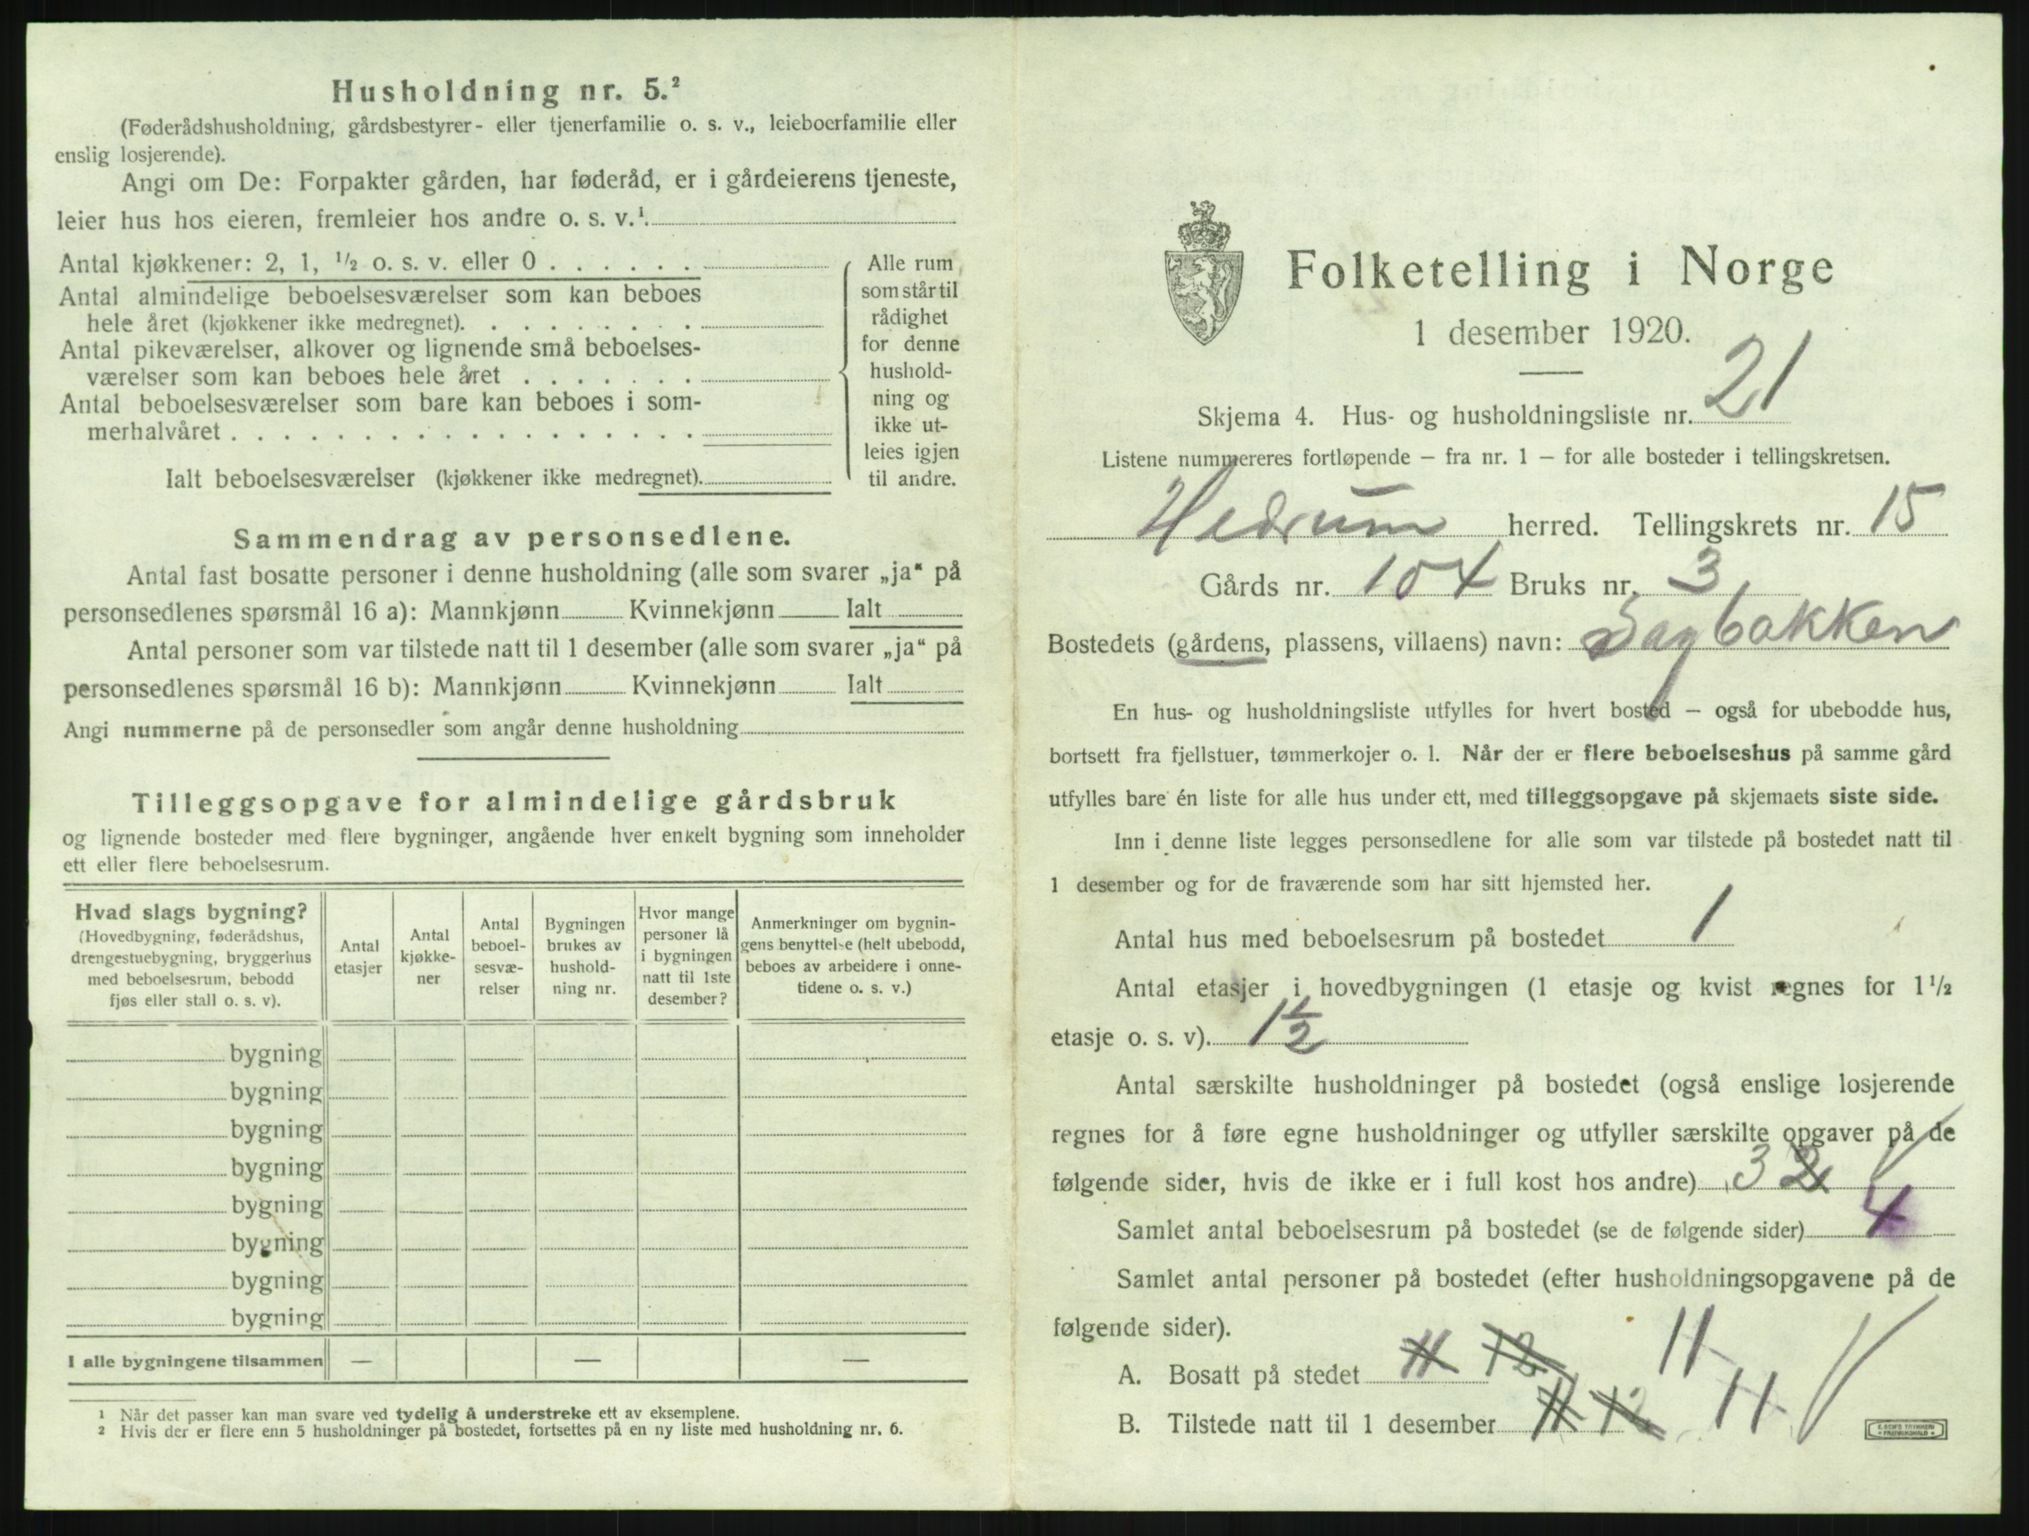 Husholdning nr. 5.²
(Føderådshusholdning, gårdsbestyrer- eller tjenerfamilie o. s. v., leieboerfamilie eller
enslig losjerende).
Angi om De: Forpakter gården, har føderåd, er i gårdeierens tjeneste,
leier hus hos eieren, fremleier hos andre o. s. v.¹
Antal kjøkkener: 2, 1, ½ o. s. v. eller 0 . . . . . .
Antal almindelige beboelsesværelser som kan beboes
hele året (kjøkkener ikke medregnet). . . . . . . . .
Antal pikeværelser, alkover og lignende små beboelses-
værelser som kan beboes hele året . . . . . . .
Antal beboelsesværelser som bare kan beboes i som-
merhalvåret . . . . . . . . . . . . . . . . . .
Ialt beboelsesværelser (kjøkkener ikke medregnet).
Alle rum
som står til
rådighet
for denne
hushold-
ning og
ikke ut-
leies igjen
til andre.
Sammendrag av personsedlene.
Antal fast bosatte personer i denne husholdning (alle som svarer „ja“ på
personsedlenes spørsmål 16 a): Mannkjønn Kvinnekjønn Ialt
Antal personer som var tilstede natt til 1 desember (alle som svarer „ja“ på
personsedlenes spørsmål 16 b): Mannkjønn Kvinnekjønn Ialt
Angi nummerne på de personsedler som angår denne husholdning
Tilleggsopgave for almindelige gårdsbruk
og lignende bosteder med flere bygninger, angående hver enkelt bygning som inneholder
ett eller flere beboelsesrum.
Hvad slags bygning?
(Hovedbygning, føderådshus,
drengestuebygning, bryggerhus
med beboelsesrum, bebodd
fjøs eller stall o. s. v).
Antal
etasjer
Antal
kjøkke-
ner
Antal
beboel-
sesvæ-
relser
Bygningen
brukes av
hushold-
ning nr.
Hvor mange
personer lå
i bygningen
natt til 1ste
desember?
Anmerkninger om bygnin-
gens benyttelse (helt ubebodd,
beboes av arbeidere i onne-
tidene o. s. v.)
bygning
bygning
bygning
bygning
bygning
bygning
bygning
bygning
I alle bygningene tilsammen — — —
¹ Når det passer kan man svare ved tydelig å understreke ett av eksemplene.
² Hvis der er flere enn 5 husholdninger på bostedet, fortsettes på en ny liste med husholdning nr. 6.
Folketelling i Norge
1 desember 1920.
Skjema 4. Hus- og husholdningsliste nr. 21
Listene nummereres fortløpende – fra nr. 1 – for alle bosteder i tellingskretsen.
Hedrum herred. Tellingskrets nr. 15
Gårds nr. 104 Bruks nr. 3
Bostedets (gårdens, plassens, villaens) navn: Sagbakken
En hus- og husholdningsliste utfylles for hvert bosted – også for ubebodde hus,
bortsett fra fjellstuer, tømmerkojer o. l. Når der er flere beboelseshus på samme gård
utfylles bare én liste for alle hus under ett, med tilleggsopgave på skjemaets siste side.
Inn i denne liste legges personsedlene for alle som var tilstede på bostedet natt til
1 desember og for de fraværende som har sitt hjemsted her.
Antal hus med beboelsesrum på bostedet 1
Antal etasjer i hovedbygningen (1 etasje og kvist regnes for 1½
etasje o. s. v). 1½
Antal særskilte husholdninger på bostedet (også enslige losjerende
regnes for å føre egne husholdninger og utfyller særskilte opgaver på de
følgende sider, hvis de ikke er i full kost hos andre) 3 2
Samlet antal beboelsesrum på bostedet (se de følgende sider) 4
Samlet antal personer på bostedet (efter husholdningsopgavene på de
følgende sider).
A. Bosatt på stedet 11 12 11
B. Tilstede natt til 1 desember 11 12 11